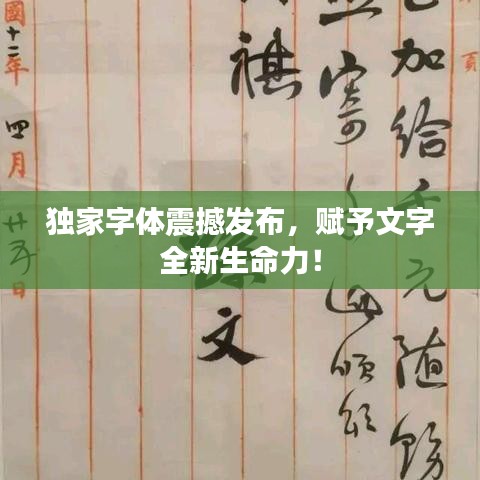 独家字体震撼发布，赋予文字
全新生命力！
頁
加给元随
寄頌
祺
文
國十二年四月廿五日